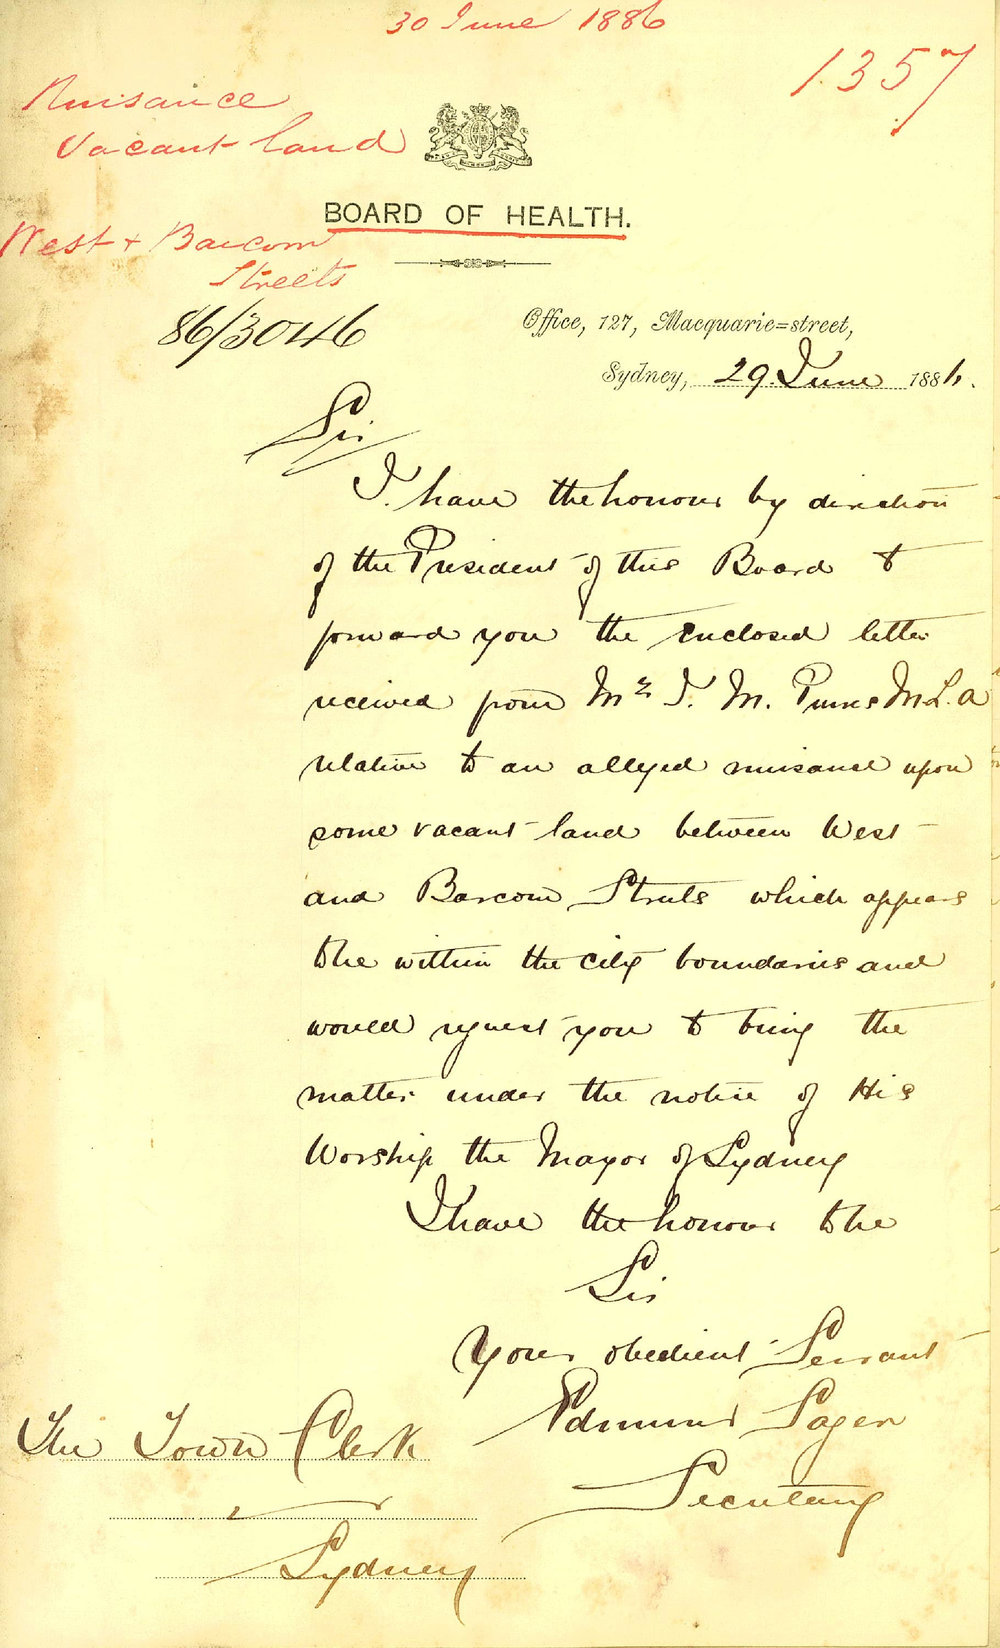 30 June 1886
1357
Nuisance
Vacant land
BOARD OF HEALTH.
West + Barcom
Streets
86/3046
Office, 127, Macquarie=street,
Sydney, 29. June 1886.
Sir
I have the honour by direction
of the President of this Board to
forward you the enclosed letter
received from Mr J. M. Purves M.L.A
relative to an alleged nuisance upon
some vacant land between West
and Barcom Streets which appears
to be within the city boundaries and
would request you to bring the
matter under the notice of His
Worship the Mayor of Sydney
I have the honour to be
Sir
Your obedient Servant
Edmund Sager
Secretary
The Town Clerk
Sydney